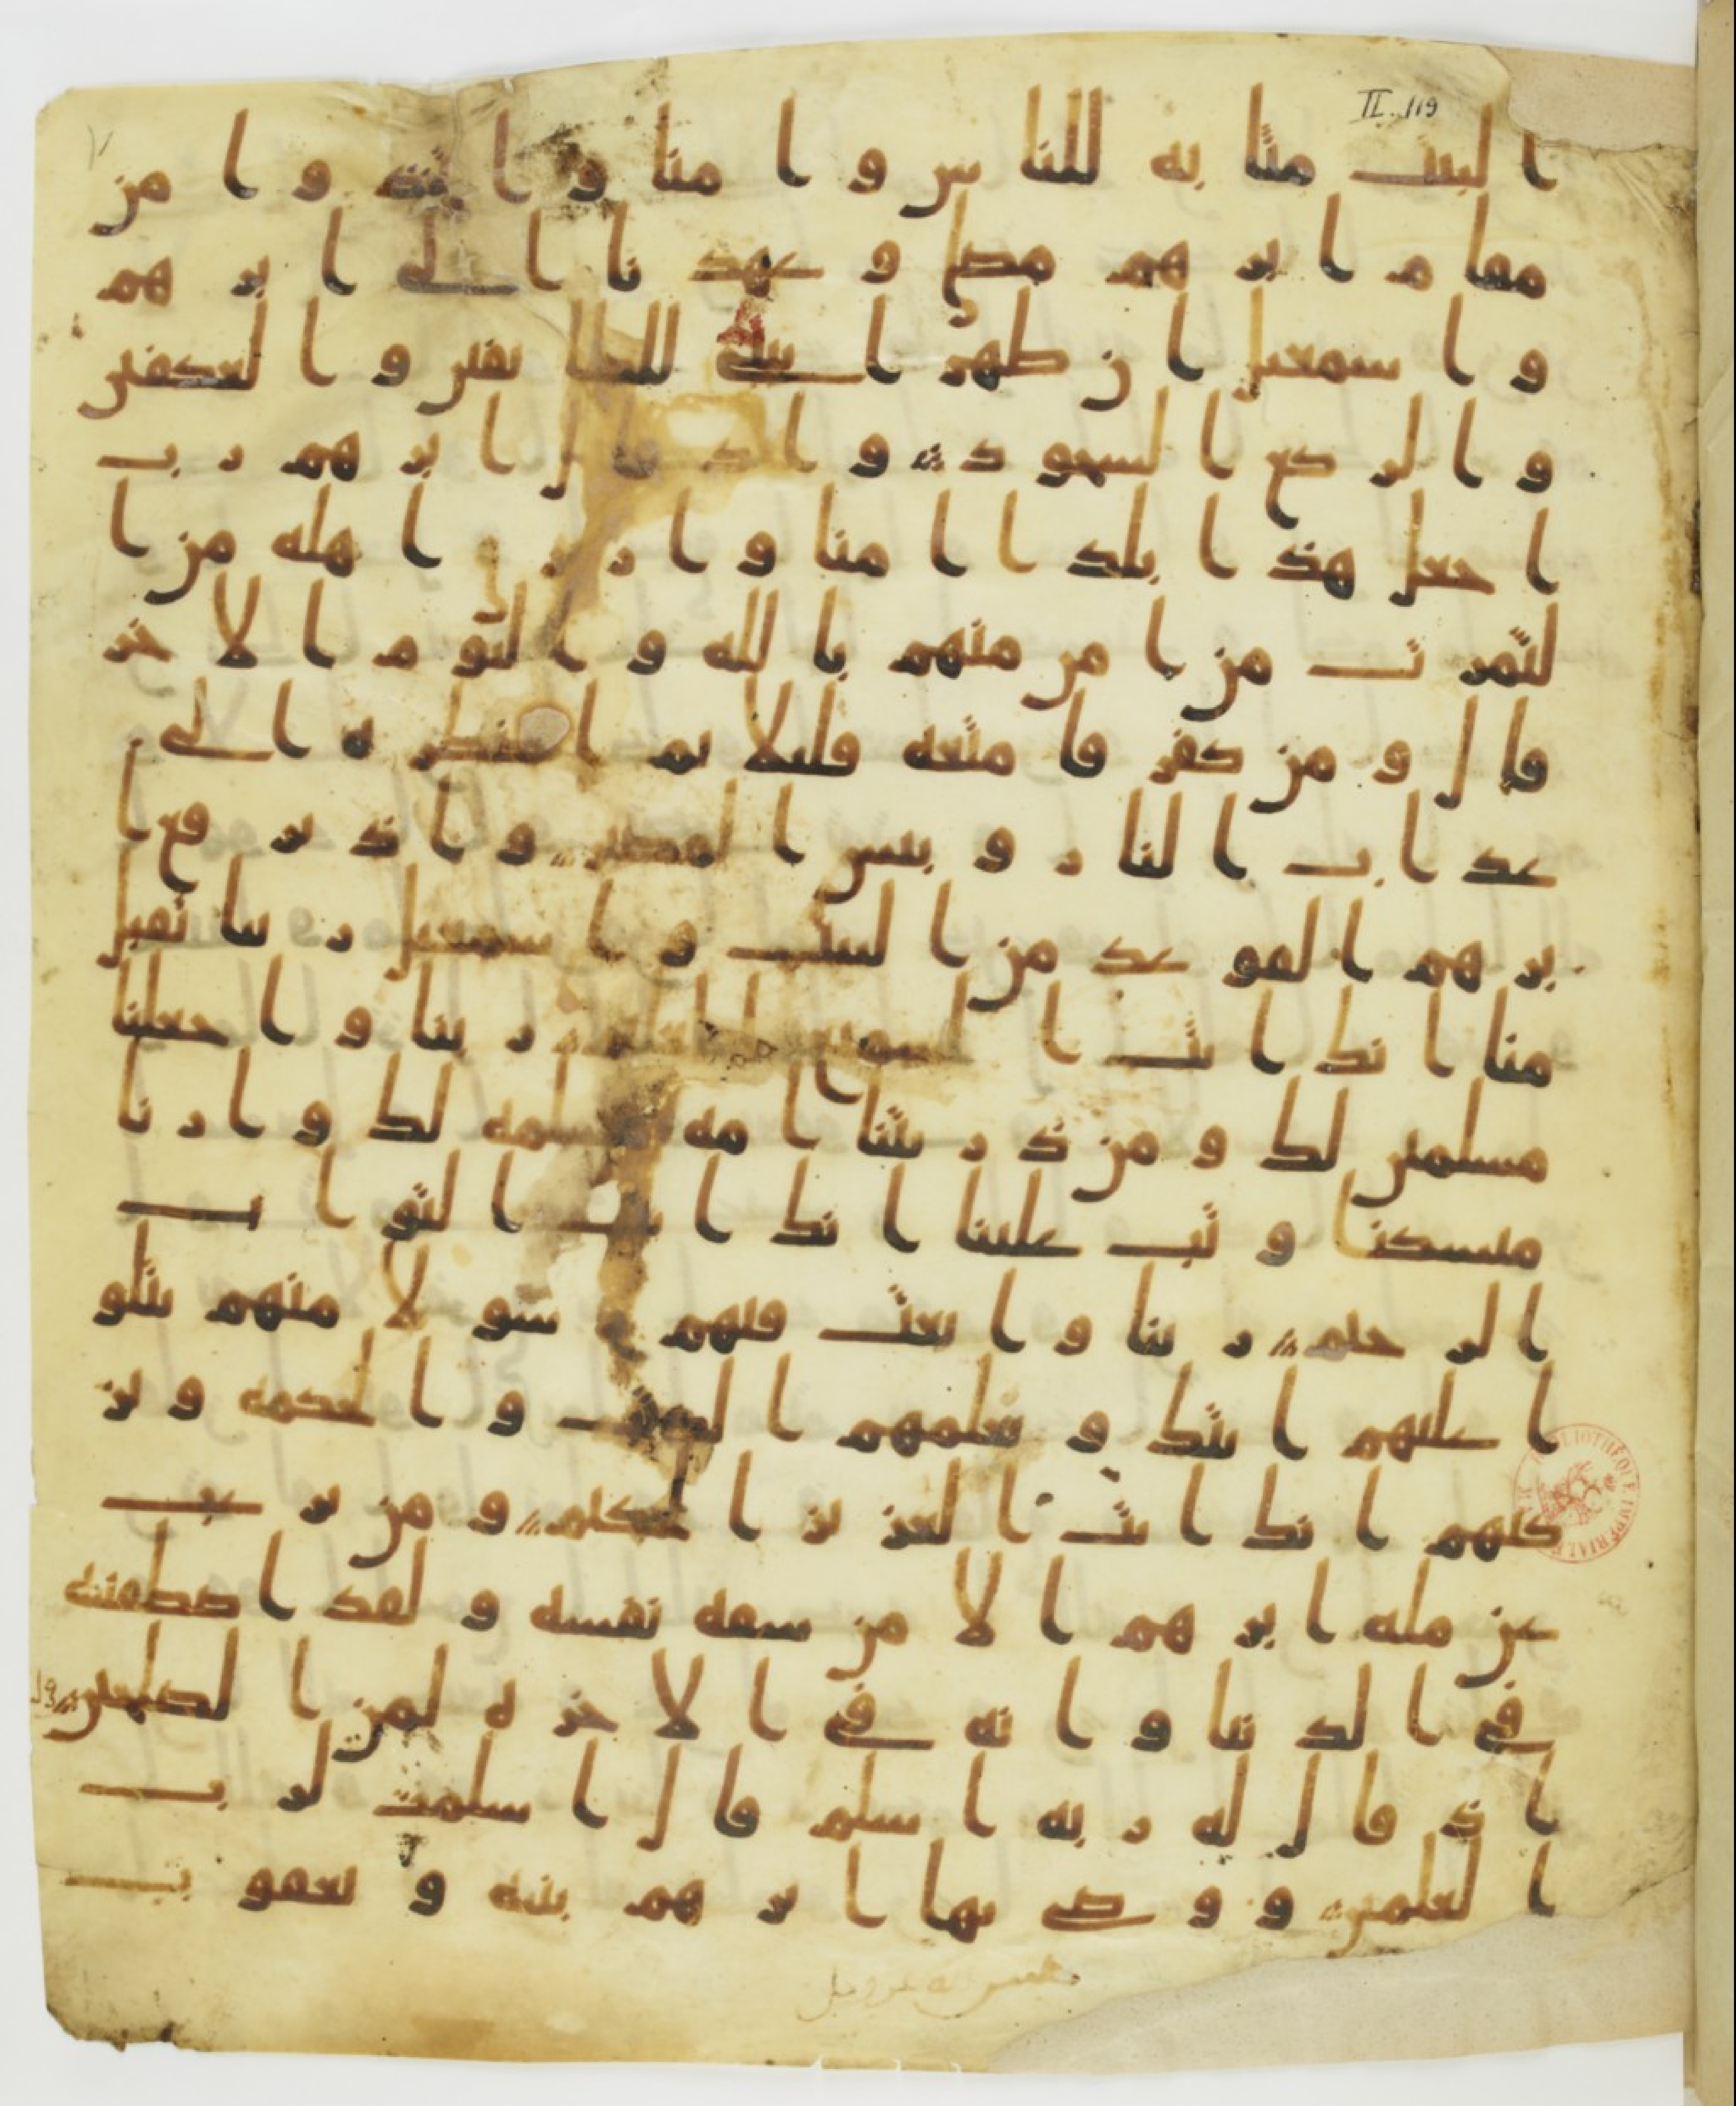 II. 119
البيت مثابه للناس وامنا واتخذوا من
مقام ابرهم مصلى وعهدنا الى ابرهم
واسمعيل ان طهرا بيتى للطائفين والعكفين
والركع السجود واذ قال ابرهم رب
اجعل هذا بلدا امنا وارزق اهله من ا
لثمرت من امن منهم بالله واليوم الاخر
قال ومن كفر فامتعه قليلا ثم اضطره الى
عذاب النار وبئس المصير واذ يرفع ا
برهم القوعد من البيت واسمعيل ربنا تقبل
منا انك انت السميع العليم ربنا واجعلنا
مسلمين لك ومن ذريتنا امه مسلمه لك وارنا
منسكنا وتب علينا انك انت التواب
الرحيم ربنا وابعث فيهم رسولا منهم يتلو
ا عليهم ايتك ويعلمهم الكتب والحكمه ويز
كيهم انك انت العزيز الحكيم ومن يرغب
عن مله ابرهم الا من سفه نفسه ولقد اصطفينه
فى الدنيا وانه فى الاخره لمن الصلحين
اذ قال له ربه اسلم قال اسلمت لرب
العلمين ووصى بها ابرهم بنيه ويعقوب